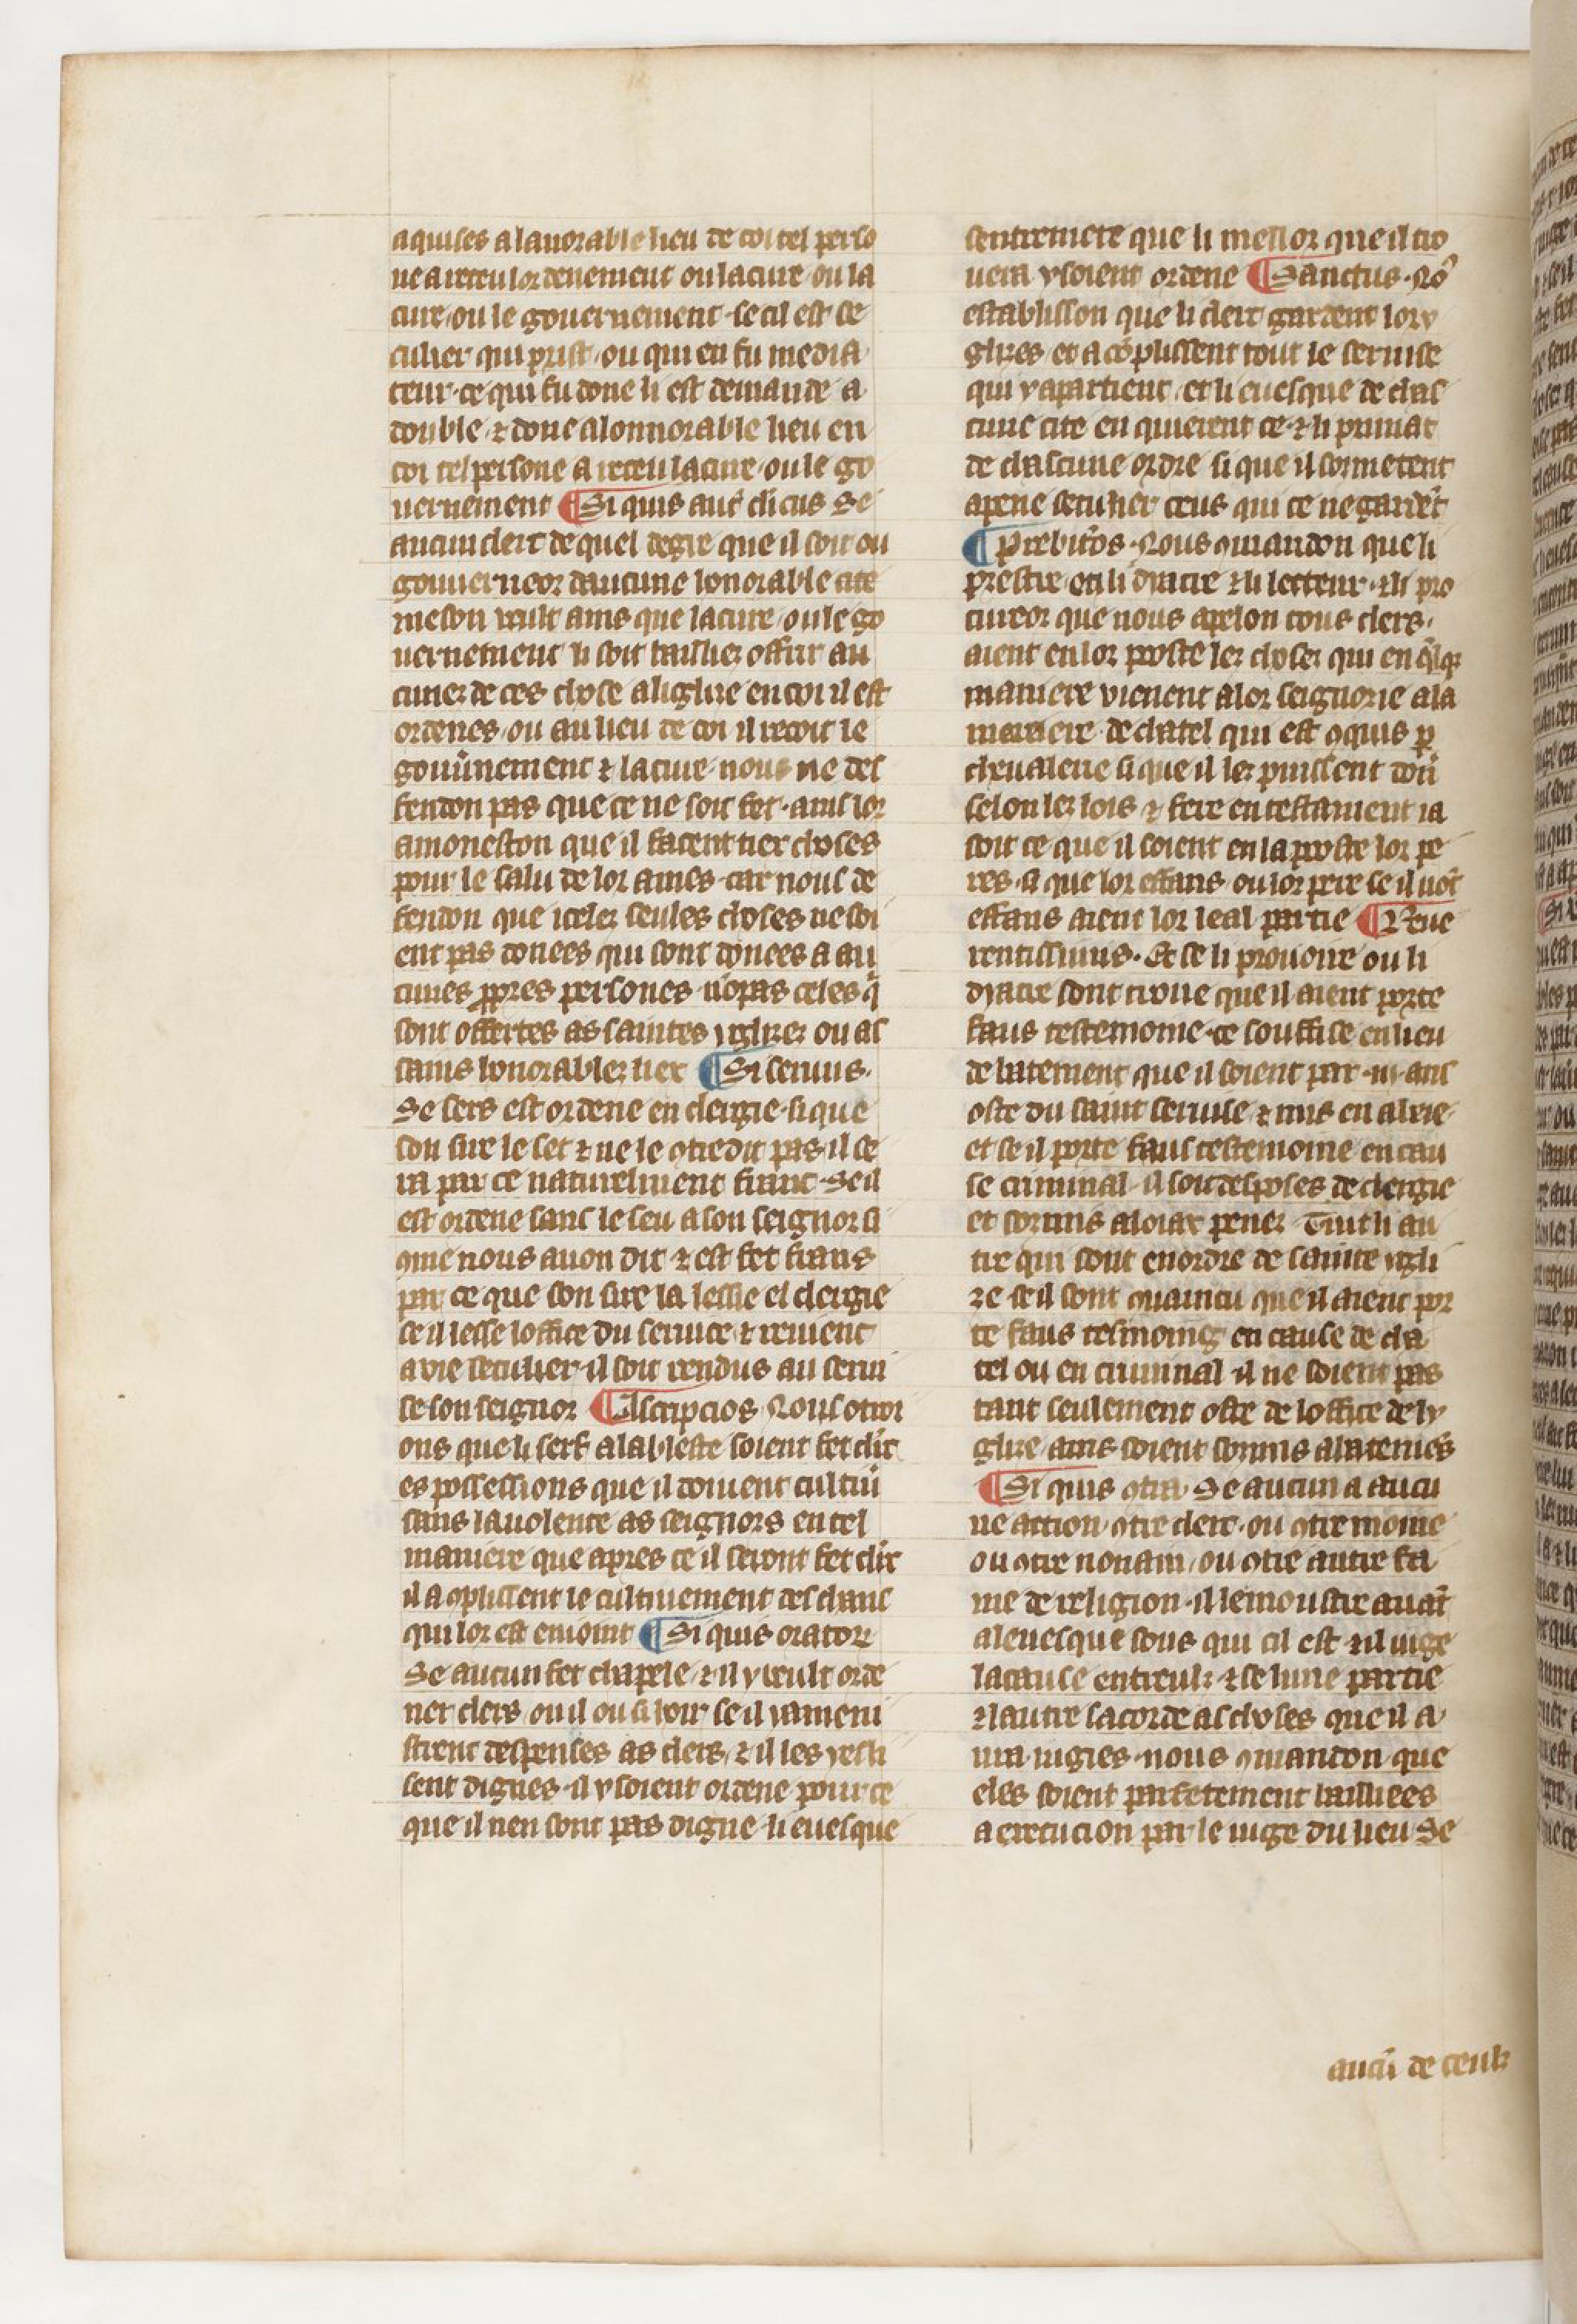 aquises a lanorable lieu de coi tel perso
ne a receu lordenement ou la cure ou la
cure ou le gouernement. se cil est se
culier qui prist ou qui en fu media
teur. ce qui fu done li est demande a
double ⁊ done a lonnorable lieu en
coi tel persone a receu la cure ou le go
uernement ¶ Si quis aut̃ cl̃icus Se
aucun clerc de quel degre que il soit ou
gouuerneor daucune honorable cite
meson veult ains que la cure ou le go
uernement li soit baillier offrir au
cunez de ces chose a liglise en coi il est
ordenes ou au lieu de coi il recoit le
gouũnement ⁊ la cure. nous ne def
fendon pas que ce ne soit fet. ains lor
amoneston que il facent tiex choses
pour le salu de lor ames. car nous de
fendon que icelez seules choses ne soi
ent pas donees qui sont donees a au
cunes ꝓpres persones nõ pas celes q̃
sont offertes as saintes yglizez ou as
sains honorablez liex ¶ Si seruus.
Se sers est ordene en clergie. si que
son sire le set ⁊ ne le ꝯtredit pas. il se
ra par ce naturelment franc. Se il
est ordene sans le seu a son seignor si
ꝯme nous auon dit ⁊ est fet frans
par ce que son sire la lessie el clergie
se il lesse loffice du seruice ⁊ reuient
a vie seculier. il soit rendus au serui
se son seignor ¶ Ascripcios Nous otroi
ons que li serf a la bleste soient fet cl̃rc
es possessions que il doiuent cultiũ
sans la volente as seignors en tel
maniere que apres ce il seront fet cl̃rc
il a ꝯplissent le cultiuement des chans
qui lor est enioint ¶ Si quis orator
Se aucun fet chapele ⁊ il y veult orde
ner clers ou il ou si hoir se il yameni
strent despenses as clers, ⁊ il les yesli
sent dignes. il y soient ordene pour ce
que il nen sont pas digne. li euesque
sentremete que li mellor que il tro
uera y soient ordene ¶ Sanctus. Nõ
establisson que li clerc gardent lor y
glizes et a cõplissent tout le seruise
qui y apartient, et li euesque de chas
cune cite en quierent ce. ⁊ li primat
de chascune ordre si que il sormetent
a peine seculier ceus qui ce ne gardẽt
¶ Presbit̃os. Nous ꝯmandon que li
prestre. et li diacre ⁊ li letteur. ⁊ li pro
cureor que nous apelon tous clers.
aient en lor poste lez chosez qui en q̃lq̃
maniere vienent a lor seignorie a la
maniere de chatel qui est ꝯquis ꝑ
cheualerie si que il lez puissent doñ
selon lez lois ⁊ fere en testament ia
soit ce que il soient en la poste lor pe
res. si que lor effans ou lor pere se il nõt
effans aient lor leal partie ¶ Reue
rentissimus. Et se li prouoire ou li
diacre sont troue que il aient porte
faus testemoine. ce souffise en lieu
de batement que il soient par .iii. ans
oste du saint seruise ⁊ mis en abeie.
et se il porte faus testemoine en cau
se criminal. il soit desposes de clergie
et sormis a loiax penez. Tuit li au
tre qui sont en ordre de sainte ygli
ze. se il sont ꝯuaincu que il aient por
te faus tesmoing en cause de cha
tel ou en criminal. il ne soient pas
tant seulement oste de loffice de ly
glize. ains soient sormis a batemẽs
¶ Si quis ꝯtra. Se aucun a aucu
ne action ꝯtre clerc. ou ꝯtre moine
ou ꝯtre nonain, ou ꝯtre autre fa
me de religion. il lemoustre auãt
a leuesque sous qui cil est. ⁊ il iuge
la cause entreulz. ⁊ se lune partie
⁊ lautre sacorde as choses que il a
ura iugies. nous ꝯmandon que
eles soient parfetement bailliees
a execucion par le iuge du lieu Se
aucũ de ceulz